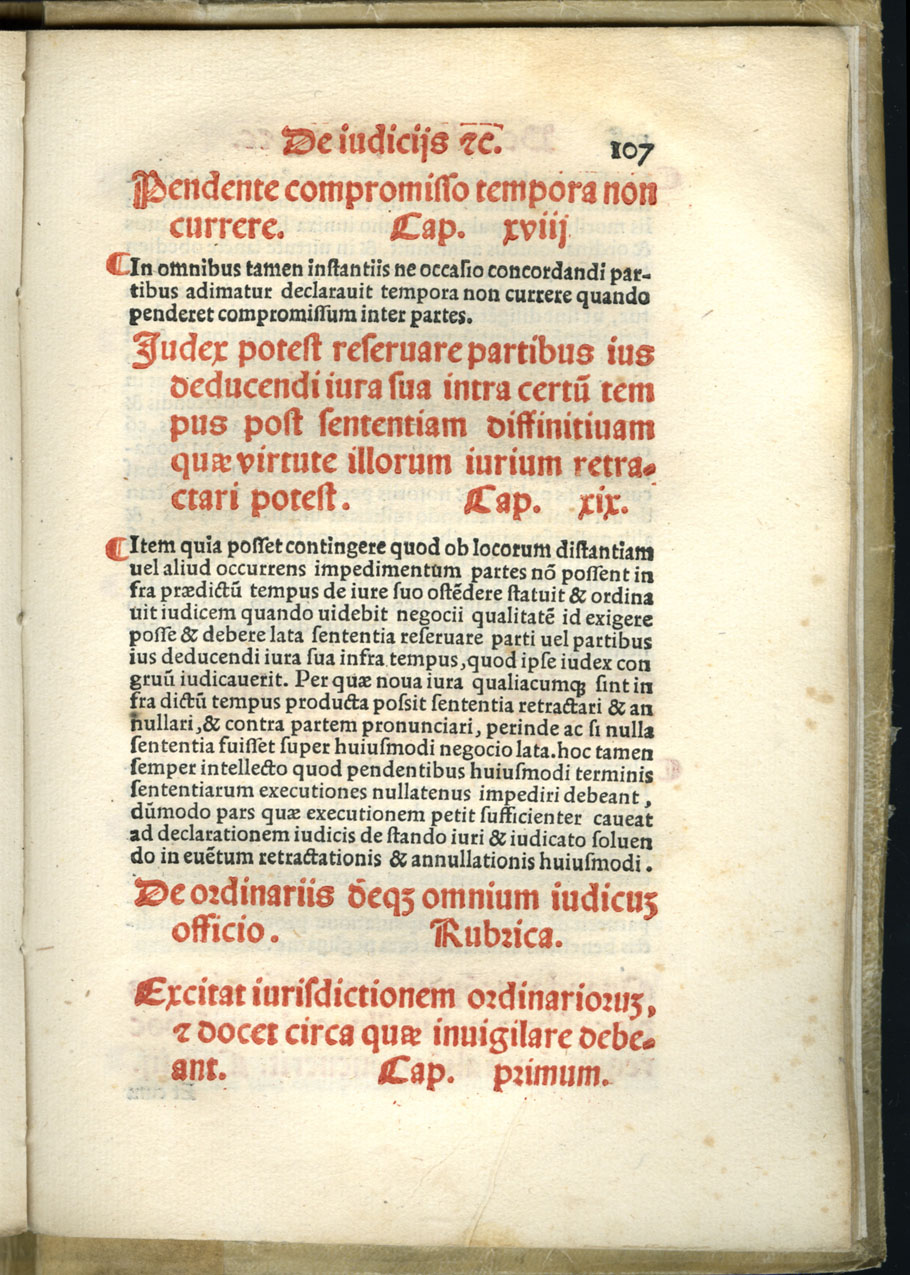 De iudicijs ⁊c̄. 107
Pendente compromiſſo tempora non
currere. Cap. xviij
¶In omnibus tamen inſtantiis ne occaſio concordandi par-
tibus adimatur declarauit tempora non currere quando
penderet compromiſſum inter partes.
Judex poteſt reſeruare partibus ius
deducendi iura ſua intra certū tem
pus poſt ſententiam diffinitiuam
quæ virtute illorum iurium retra-
ctari poteſt. Cap. xix.
¶Item quia poſſet contingere quod ob locorum diſtantiam
uel aliud occurrens impedimentum partes nō poſſent in
fra prædictū tempus de iure ſuo oſtēdere ſtatuit & ordina
uit iudicem quando uidebit negocii qualitatē id exigere
poſſe & debere lata ſententia reſeruare parti uel partibus
ius deducendi iura ſua infra tempus, quod ipſe iudex con
gruū iudicauerit. Per quæ noua iura qualiacumqꝫ ſint in
fra dictū tempus producta poſſit ſententia retractari & an
nullari, & contra partem pronunciari, perinde ac ſi nulla
ſententia fuiſſet ſuper huiuſmodi negocio lata. hoc tamen
ſemper intellecto quod pendentibus huiuſmodi terminis
ſententiarum executiones nullatenus impediri debeant,
dūmodo pars quæ executionem petit ſufficienter caueat
ad declarationem iudicis de ſtando iuri & iudicato ſoluen
do in euētum retractationis & annullationis huiuſmodi.
De ordinariis dēqꝫ omnium iudicuꝫ
officio. Rubrica.
Excitat iuriſdictionem ordinarioruꝫ,
⁊ docet circa quæ inuigilare debe-
ant. Cap. primum.